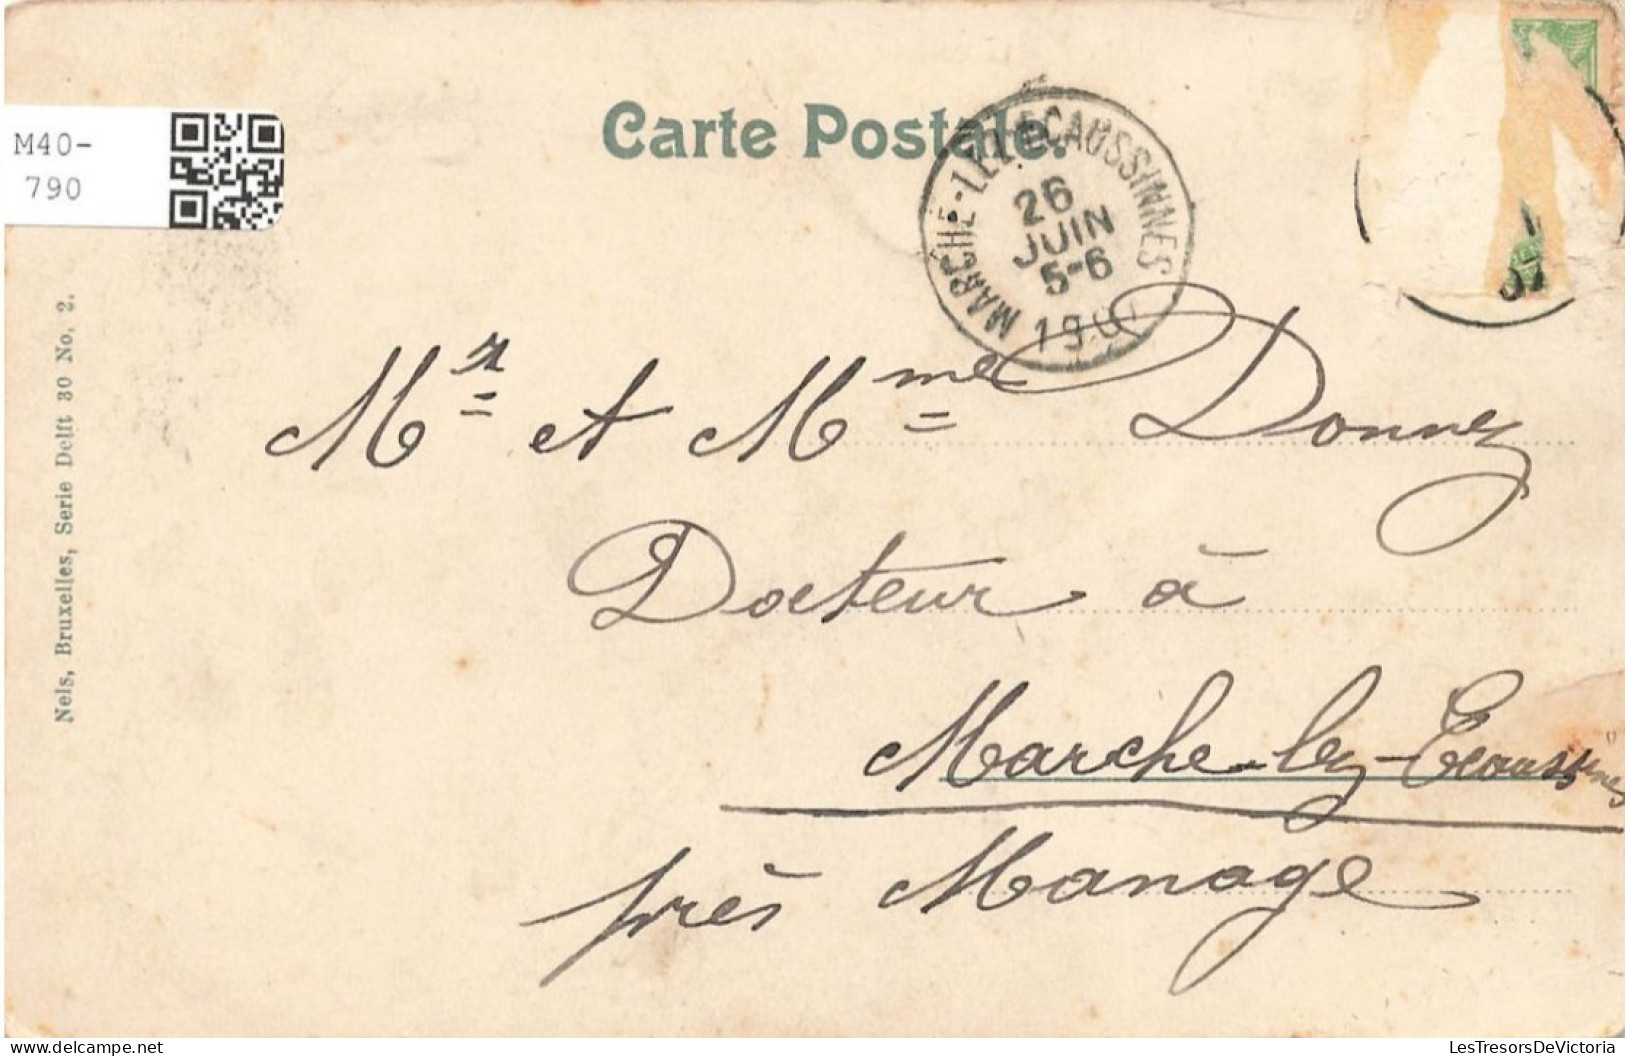 M40-
790
Carte Postale.
MARCHE-LEZ-ECAUSSINNES
26
JUIN
5-6
190
07
Nels, Bruxelles, Serie Delft 30 No. 2.
Mr et Mme Donnez
Docteur à
Marche-lez-Ecaussinnes
près Manage
LesTresorsDeVictoria